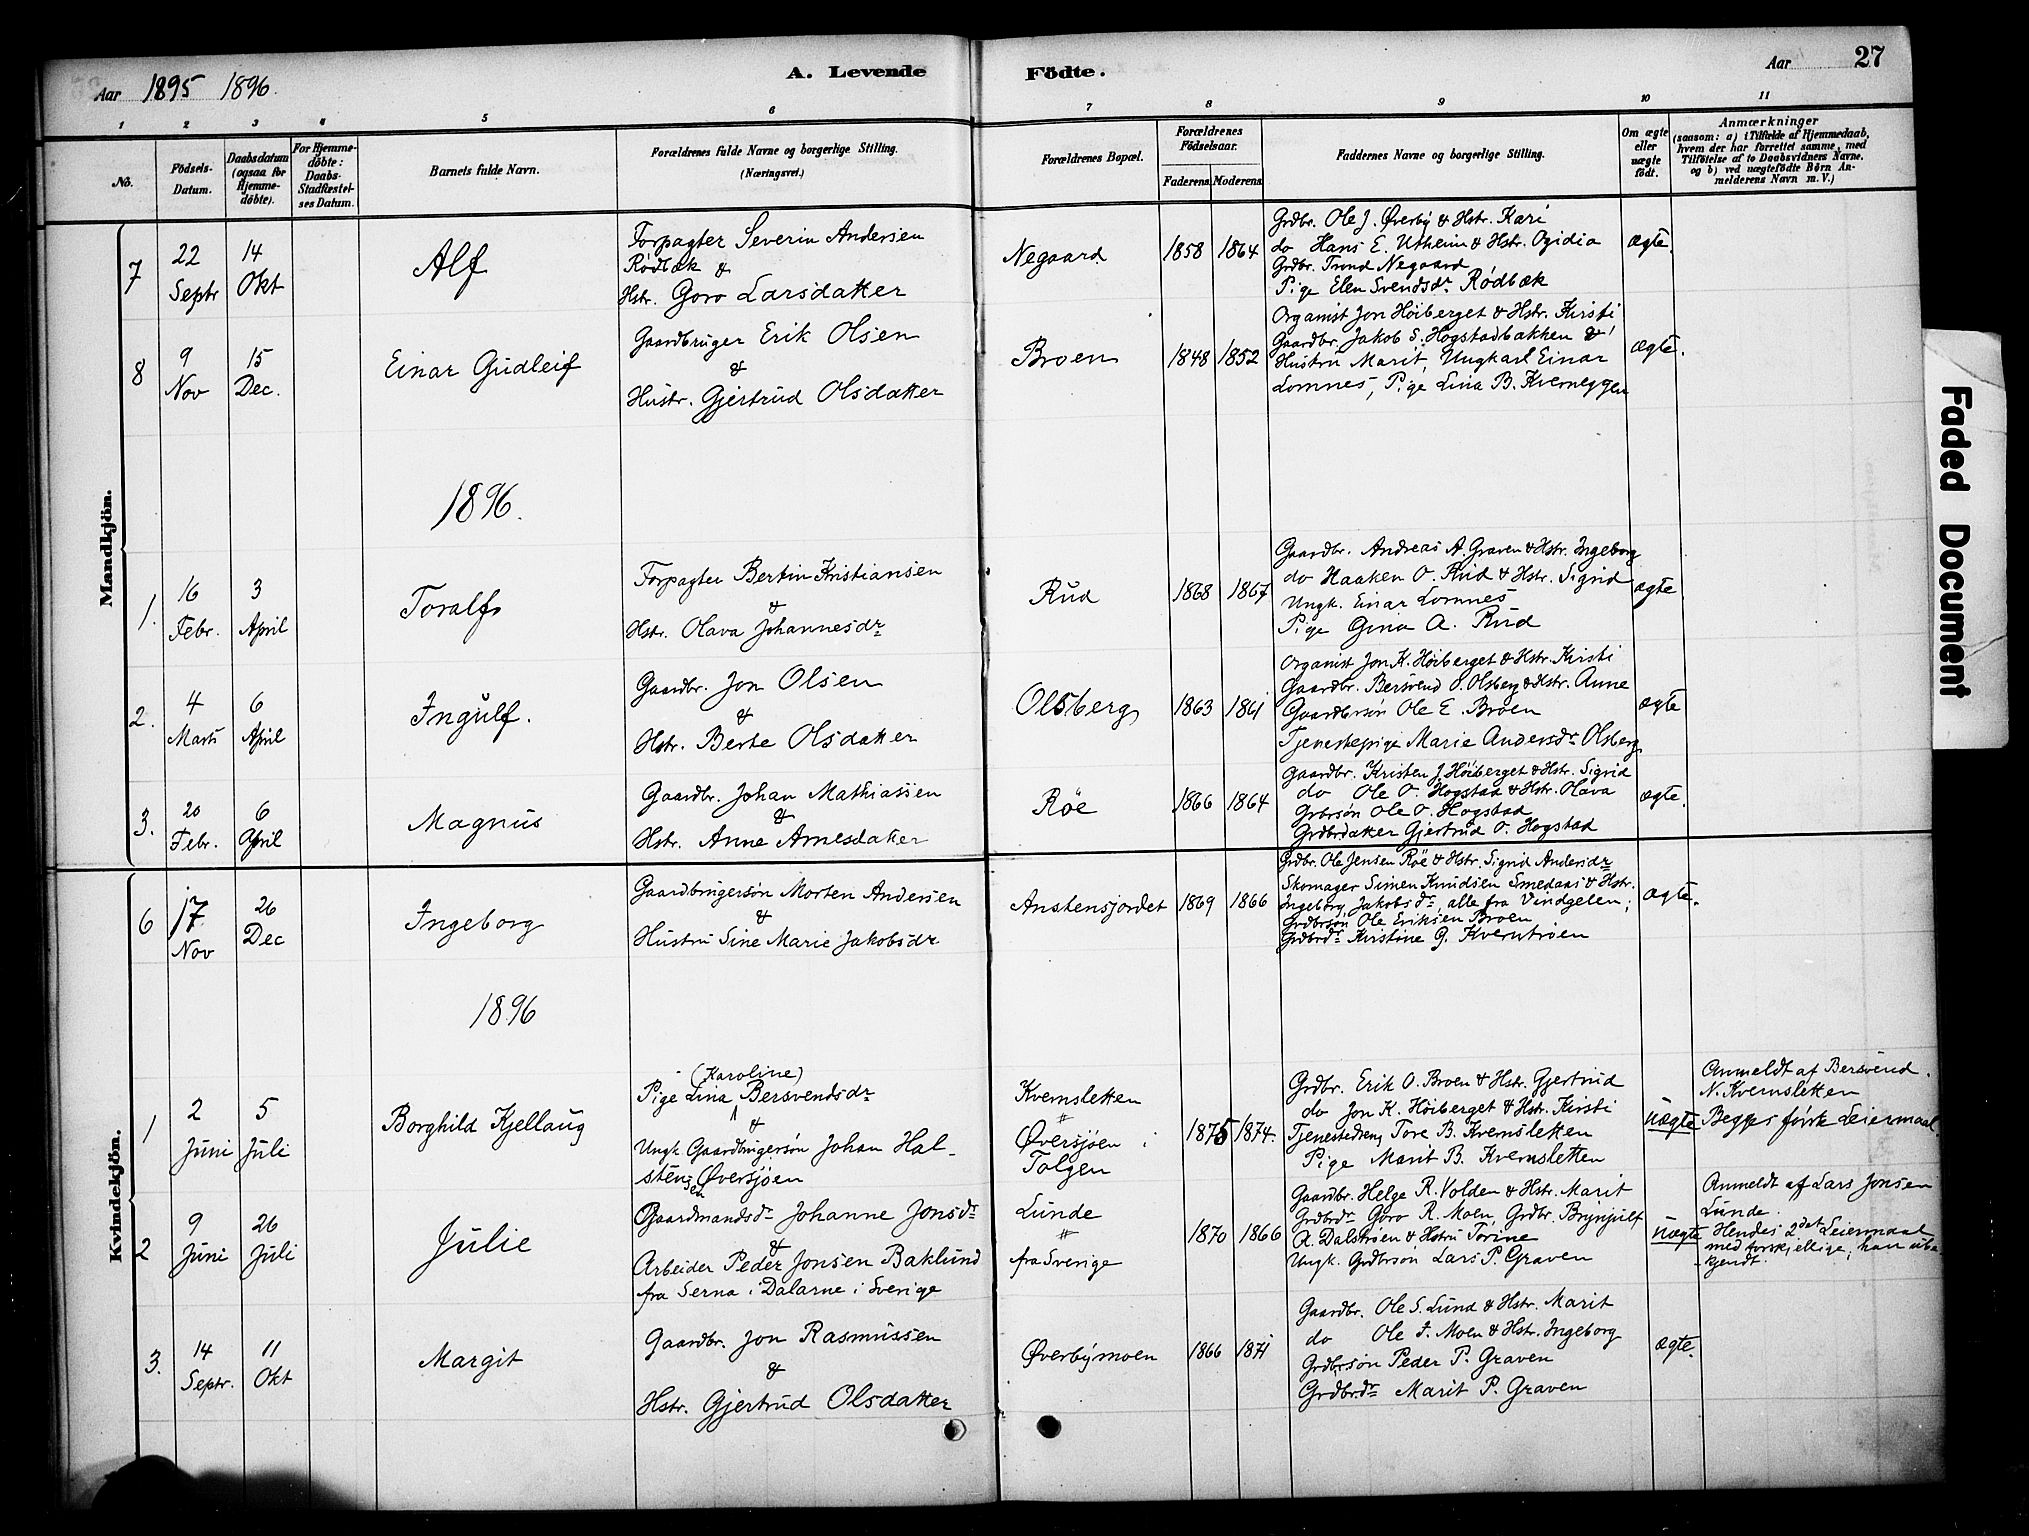 Aar 1895 1896.
A. Levende Födte.
Aar 27
1 2 3 4 5 6 7 8 9 10 11
No.
Födsels-Datum.
Daabsdatum (ogsaa for Hjemmedöbte).
For Hjemmedöbte: Daabs-Stadfæstelses Datum.
Barnets fulde Navn.
Forældrenes fulde Navne og borgerlige Stilling.
(Næringsvei.)
Forældrenes Bopæl.
Forældrenes Födselsaar.
Faderens Moderens
Faddernes Navne og borgerlige Stilling.
Om ægte eller uægte födt.
Anmærkninger
(saasom: a) i Tilfælde af Hjemmedaab,
hvem der har forrettet samme, med
Tilföielse af to Daabsvidners Navne.
og b) ved uægtefödte Börn Anmelderens Navn m. V.)
Mandkjön.
7
22 Septr
14 Okt
Alf
Forpagter Severin Andersen
Rödbæk &
Hstr. Goro Larsdatter
Negaard
1858 1864
Grdbr. Ole J. Øverby & Hstr. Kari
do Hans E. Utheim & Hstr. Ogidia
Grdbr. Trond Negaard
Pige Elen Svendsdr Rødbæk
ægte.
8
9 Nov
15 Dec.
Einar Gudleif
Gaardbruger Erik Olsen
&
Hustr. Gjertrud Olsdatter
Broen
1848 1852
Organist Jon Höiberget & Hstr. Kirsti
Gaardbr. Jakob S. Hogstadbakken &
Hustru Marit, Ungkarl Einar
Lomnes, Pige Lina B. Kverneggen
ægte.
1896.
1.
16 Febr.
3 April
Toralf
Forpagter Bertin Kristiansen
&
Hstr. Olava Johannesdr
Rud
1868 1867
Gaardbr. Andreas A. Graven & Hstr. Ingeborg
do Haaken O. Rud & Hstr. Sigrid
Ungk. Einar Lomnes
Pige Gina A. Rud
ægte
2.
4 Marts
6 April
Ingulf.
Gaardbr. Jon Olsen
&
Hstr. Berte Olsdatter
Olsberg
1863 1861
Organist Jon K. Höiberget & Hstr. Kirsti
Gaardbr. Bersvend O. Olsberg & Hstr. Anne
Gaardbrsön Ole E. Broen
Tjenestepige Marie Andersdr Olsberg
ægte
3.
20 Febr.
6 April
Magnus
Gaardbr. Johan Mathiasen
&
Hstr. Anne Arnesdatter
Röe
1866 1864
Gaardbr. Kristen J. Höiberget & Hstr. Sigrid
do Ole O. Hogstad & Hstr. Olava
Grbrsön Ole O. Hogstad
Grdbrdatter Gjertrud O. Hogstad
ægte.
Kvindekjön.
6
17 Nov
26 Dec
Ingeborg
Gaardbrugersön Morten Andersen
&
Hustru Sine Marie Jakobsdr
Anstensjordet
1869 1866
Grdbr. Ole Jensen Röe & Hstr. Sigrid Andersdr
Skomager Simen Knudsen Smedaas & Hstr.
Ingeborg Jakobsdr, alle fra Vindgelen;
Grdbrsön Ole Eriksen Broen
Grdbrdr Kirstine G. Kverntröen
ægte.
1896
1
2 Juni
5 Juli
Borghild Kjellaug
(Karoline)
Pige Lina Bersvendsdr
&
Ungk. Gaardbrugersön Johan Hal-
stensen Øversjöen
Kvernsletten
"
Øversjöen i
Tolgen
1875 1874.
Grdbr. Erik O. Broen & Hstr. Gjertrud
do Jon K. Höiberget & Hstr. Kirsti
Tjenestedreng Tore B. Kvernsletten
Pige Marit B. Kvernsletten
uægte
Anmeldt af Bersvend
N. Kvernsletten
Begges förste Leiermaal.
2
9 Juni
26 Juli
Julie
Gaardmandsdr Johanne Jonsdr
&
Arbeider Peder Jonsen Baklund
fra Serna i Dalarne i Sverige
Lunde
"
fra Sverige
1870 1866
Gaardbr. Helge R. Volden & Hstr. Marit
Grdbrdr Goro R. Moen, Grdbr. Brynjulf
R. Dalströen & Hstru Torine
Ungk. Grdbrsön Lars P. Graven
Uægte
Anmeldt af Lars Jonsen
Lunde.
Hendes 2det Leiermaal
med forskjellige; han ube-
kjendt.
3.
14 Septr.
11 Okt
Margit
Gaardbr. Jon Rasmussen
&
Hstr. Gjertrud Olsdatter
Øverbymoen
1866 1871
Gaardbr. Ole S. Lund & Hstr. Marit
do Ole F. Moen & Hstr. Ingeborg
Grdbrsön Peder P. Graven
Grdbrdr Marit P. Graven
ægte.
Faded Document